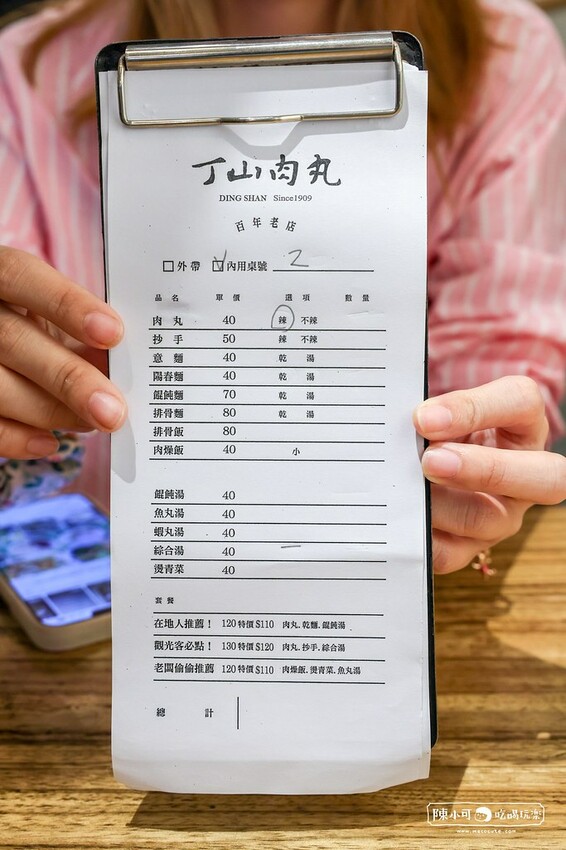 丁山肉丸
DING SHAN Since1909
百年老店
外帶 V 內用桌號 2
品名 單價 選項 數量
肉丸 40 辣 不辣
抄手 50 辣 不辣
意麵 40 乾 湯
陽春麵 40 乾 湯
餛飩麵 70 乾 湯
排骨麵 80 乾 湯
排骨飯 80
肉燥飯 40 小
餛飩湯 40
魚丸湯 40
蝦丸湯 40
綜合湯 40 一
燙青菜 40
套餐
在地人推薦! 120特價$110 肉丸.乾麵.餛飩湯
觀光客必點! 130特價$120 肉丸.抄手.綜合湯
老闆偷偷推薦 120特價$110 肉燥飯.燙青菜.魚丸湯
總計
陳小可 吃喝玩樂